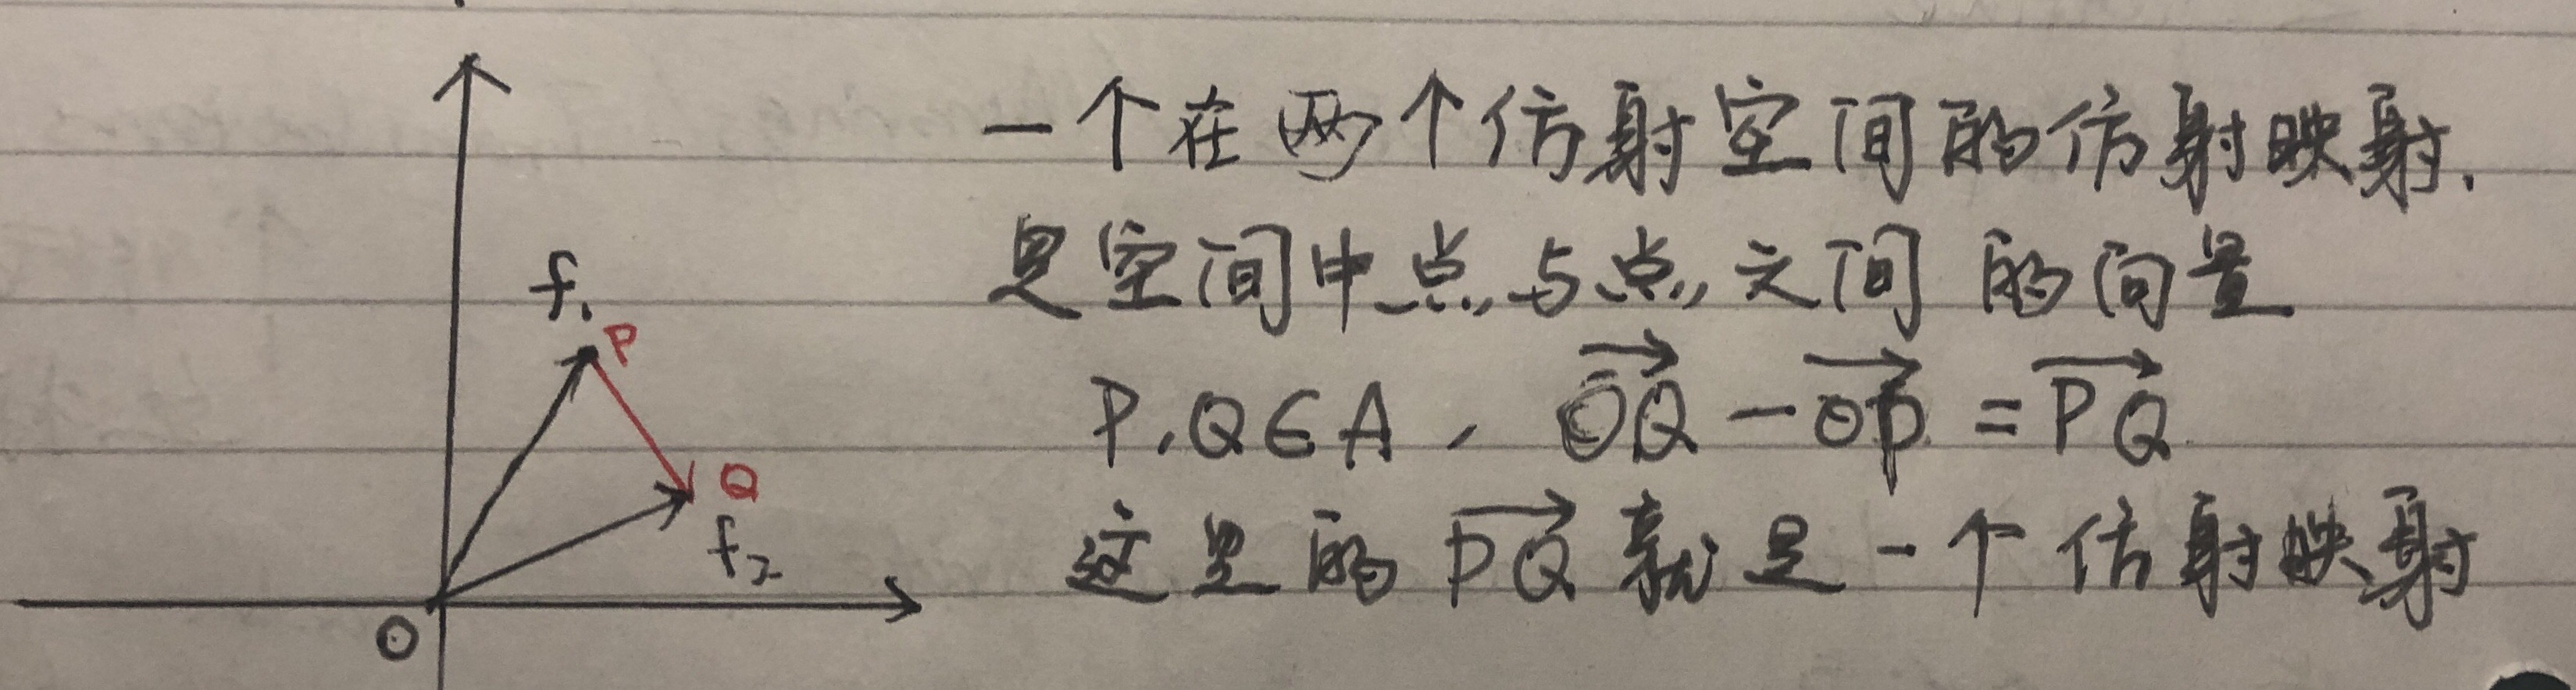 一个在两个仿射空间的仿射映射.
是空间中点与点之间的向量
P,Q∈A, \overrightarrow{OQ} - \overrightarrow{OP} = \overrightarrow{PQ}
这里的 \overrightarrow{PQ} 就是一个仿射映射
f₁
P
Q
f₂
O